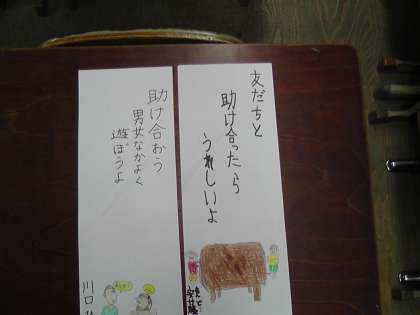 友だちと
助け合ったら
うれしいよ
助け合おう
男女なかよく
遊ぼうよ
川口